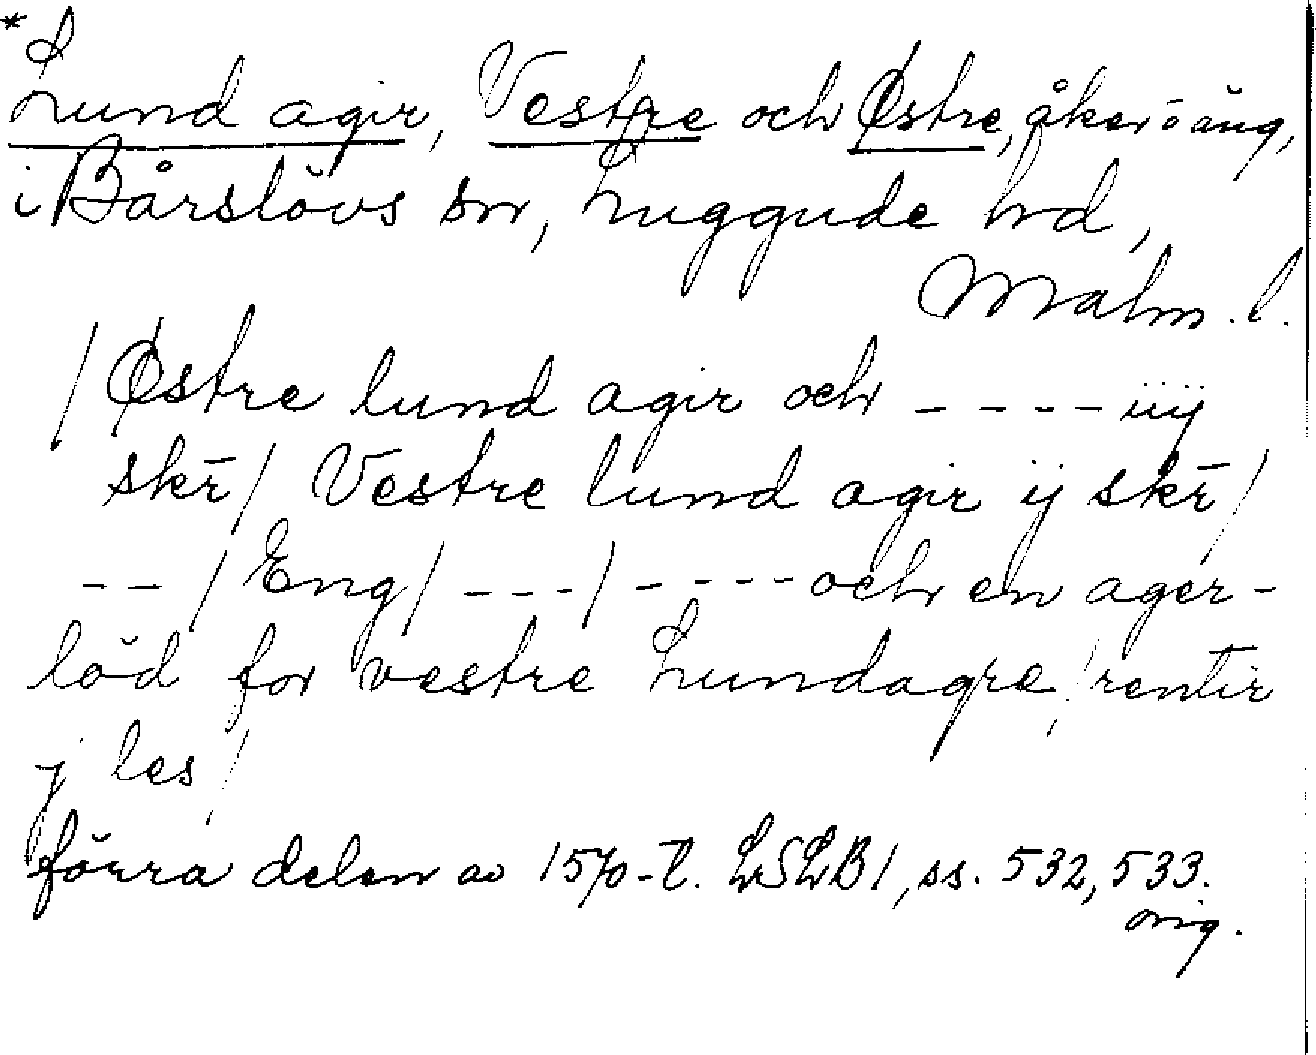 *
Lund agir, Vestre och Østre, åker o äng,
i Bårslövs sn, Luggude hd,
Malm. l.
/ Østre lund agir och - - - - iiij
skr̄ / Vestre lund agir ij skr̄ /
- - / Eng / - - - / - - - - och en ager-
löd for vestre Lundagre / rentir
j les /
förra delen av 1570-t. LSLB1, ss. 532, 533.
orig.